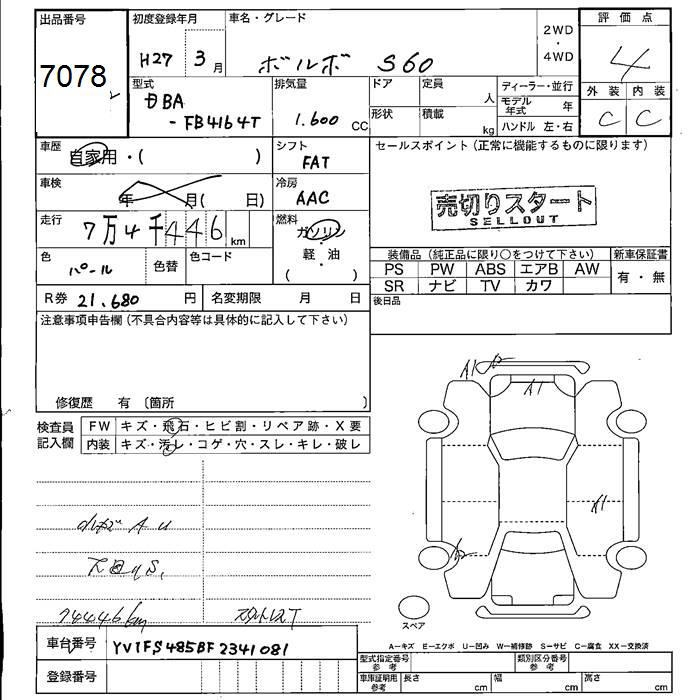 出品番号 初度登録年月 車名・グレード 評価点
7078 H27 3月 ボルボ S60 2WD・4WD 4
型式 排気量 ドア 定員 人 ディーラー・並行 外装 内装
DBA モデル年式 年 C C
-FB4164T 1.600 CC 形状 積載 kg ハンドル 左・右
車歴 自家用・( ) シフト FAT セールスポイント(正常に機能するものに限ります)
車検 年 月( 日) 冷房 AAC 売切りスタート
SELLOUT
走行 7万4千446km 燃料 ガソリン
軽・油
( )
装備品(純正品に限り○をつけて下さい) 新車保証書
色 パール 色替 色コード PS PW ABS エアB AW 有・無
SR ナビ TV カワ
R券 21.680円 名変期限 月 日 後日品
注意事項申告欄(不具合内容等は具体的に記入して下さい)
修復歴 有 〔箇所 〕
検査員記入欄 FW キズ・飛石・ヒビ割・リペア跡・X要
内装 キズ・汚レ・コゲ・穴・スレ・キレ・破レ
A1
A1
A1
A U
74446km
スペア
A-キズ E-エクボ U-凹み W-補修跡 S-サビ C-腐食 XX-交換済
車台番号 YV1FS485BF2341081 型式指定番号 参考 類別区分番号 参考
登録番号 車庫証明用 参考 長さ cm 幅 cm 高さ cm